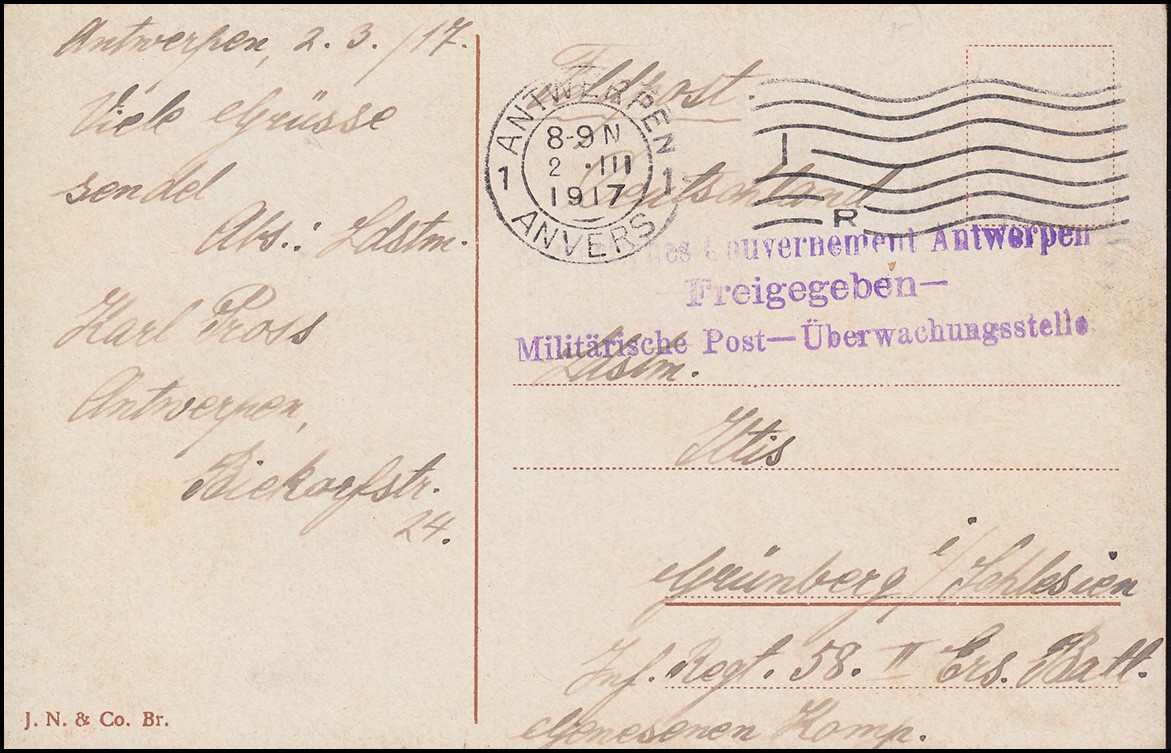 Antwerpen, 2. 3. /17.
Viele Grüsse
sendet
Abs.: Ldstm.
Karl Pross
Antwerpen,
Biekorfstr.
24.
J. N. & Co. Br.
Feldpost.
ANTWERPEN
1 8-9 N 1
2 · III
1917
ANVERS
I
R
Deutschland
Gouvernement Antwerpen
—Freigegeben—
Militärische Post—Überwachungsstelle.
Ldstm.
Iltis
Grünberg i/Schlesien
Inf. Regt. 58. II Ers. Batl.
Genesenen Komp.